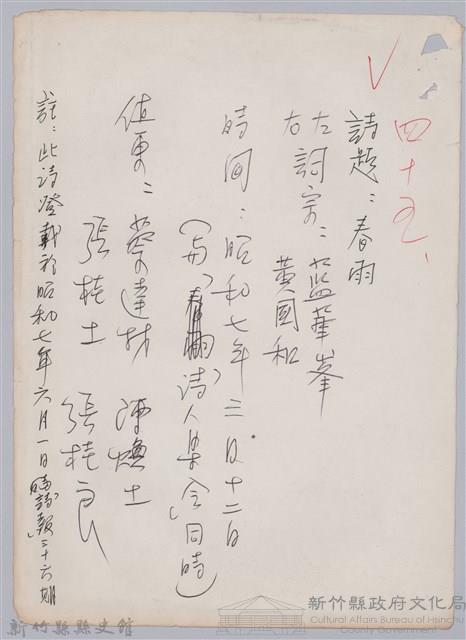 四十五、
詩題：春雨
左詞宗：藍華峯
右　　　黃國和
時間：昭和七年三月十二日
(與「春雨」詩人集会同時)
值東：蔡達材　陳煥土
張桂土　張桂良
註：此詩登載於昭和七年六月一日「詩報」三十六期
新竹縣縣史館
新竹縣政府文化局
Cultural Affairs Bureau of Hsinchu
County Government